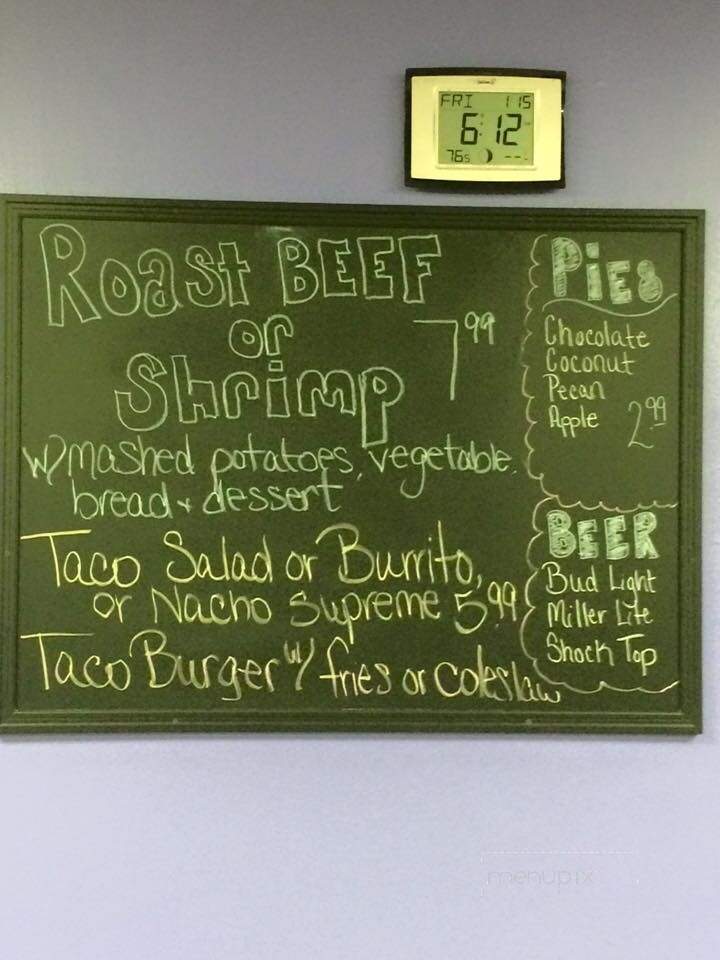 FRI 1 15
6:12
76s --
Roast BEEF
or
Shrimp 7 99
w/ mashed potatoes, vegetable,
bread + dessert
Taco Salad or Burrito,
or Nacho Supreme 5.99
Taco Burger w/ fries or coleslaw
Pies
Chocolate
Coconut
Pecan
Apple 2.99
BEER
Bud Light
Miller Lite
Shock Top
menupix